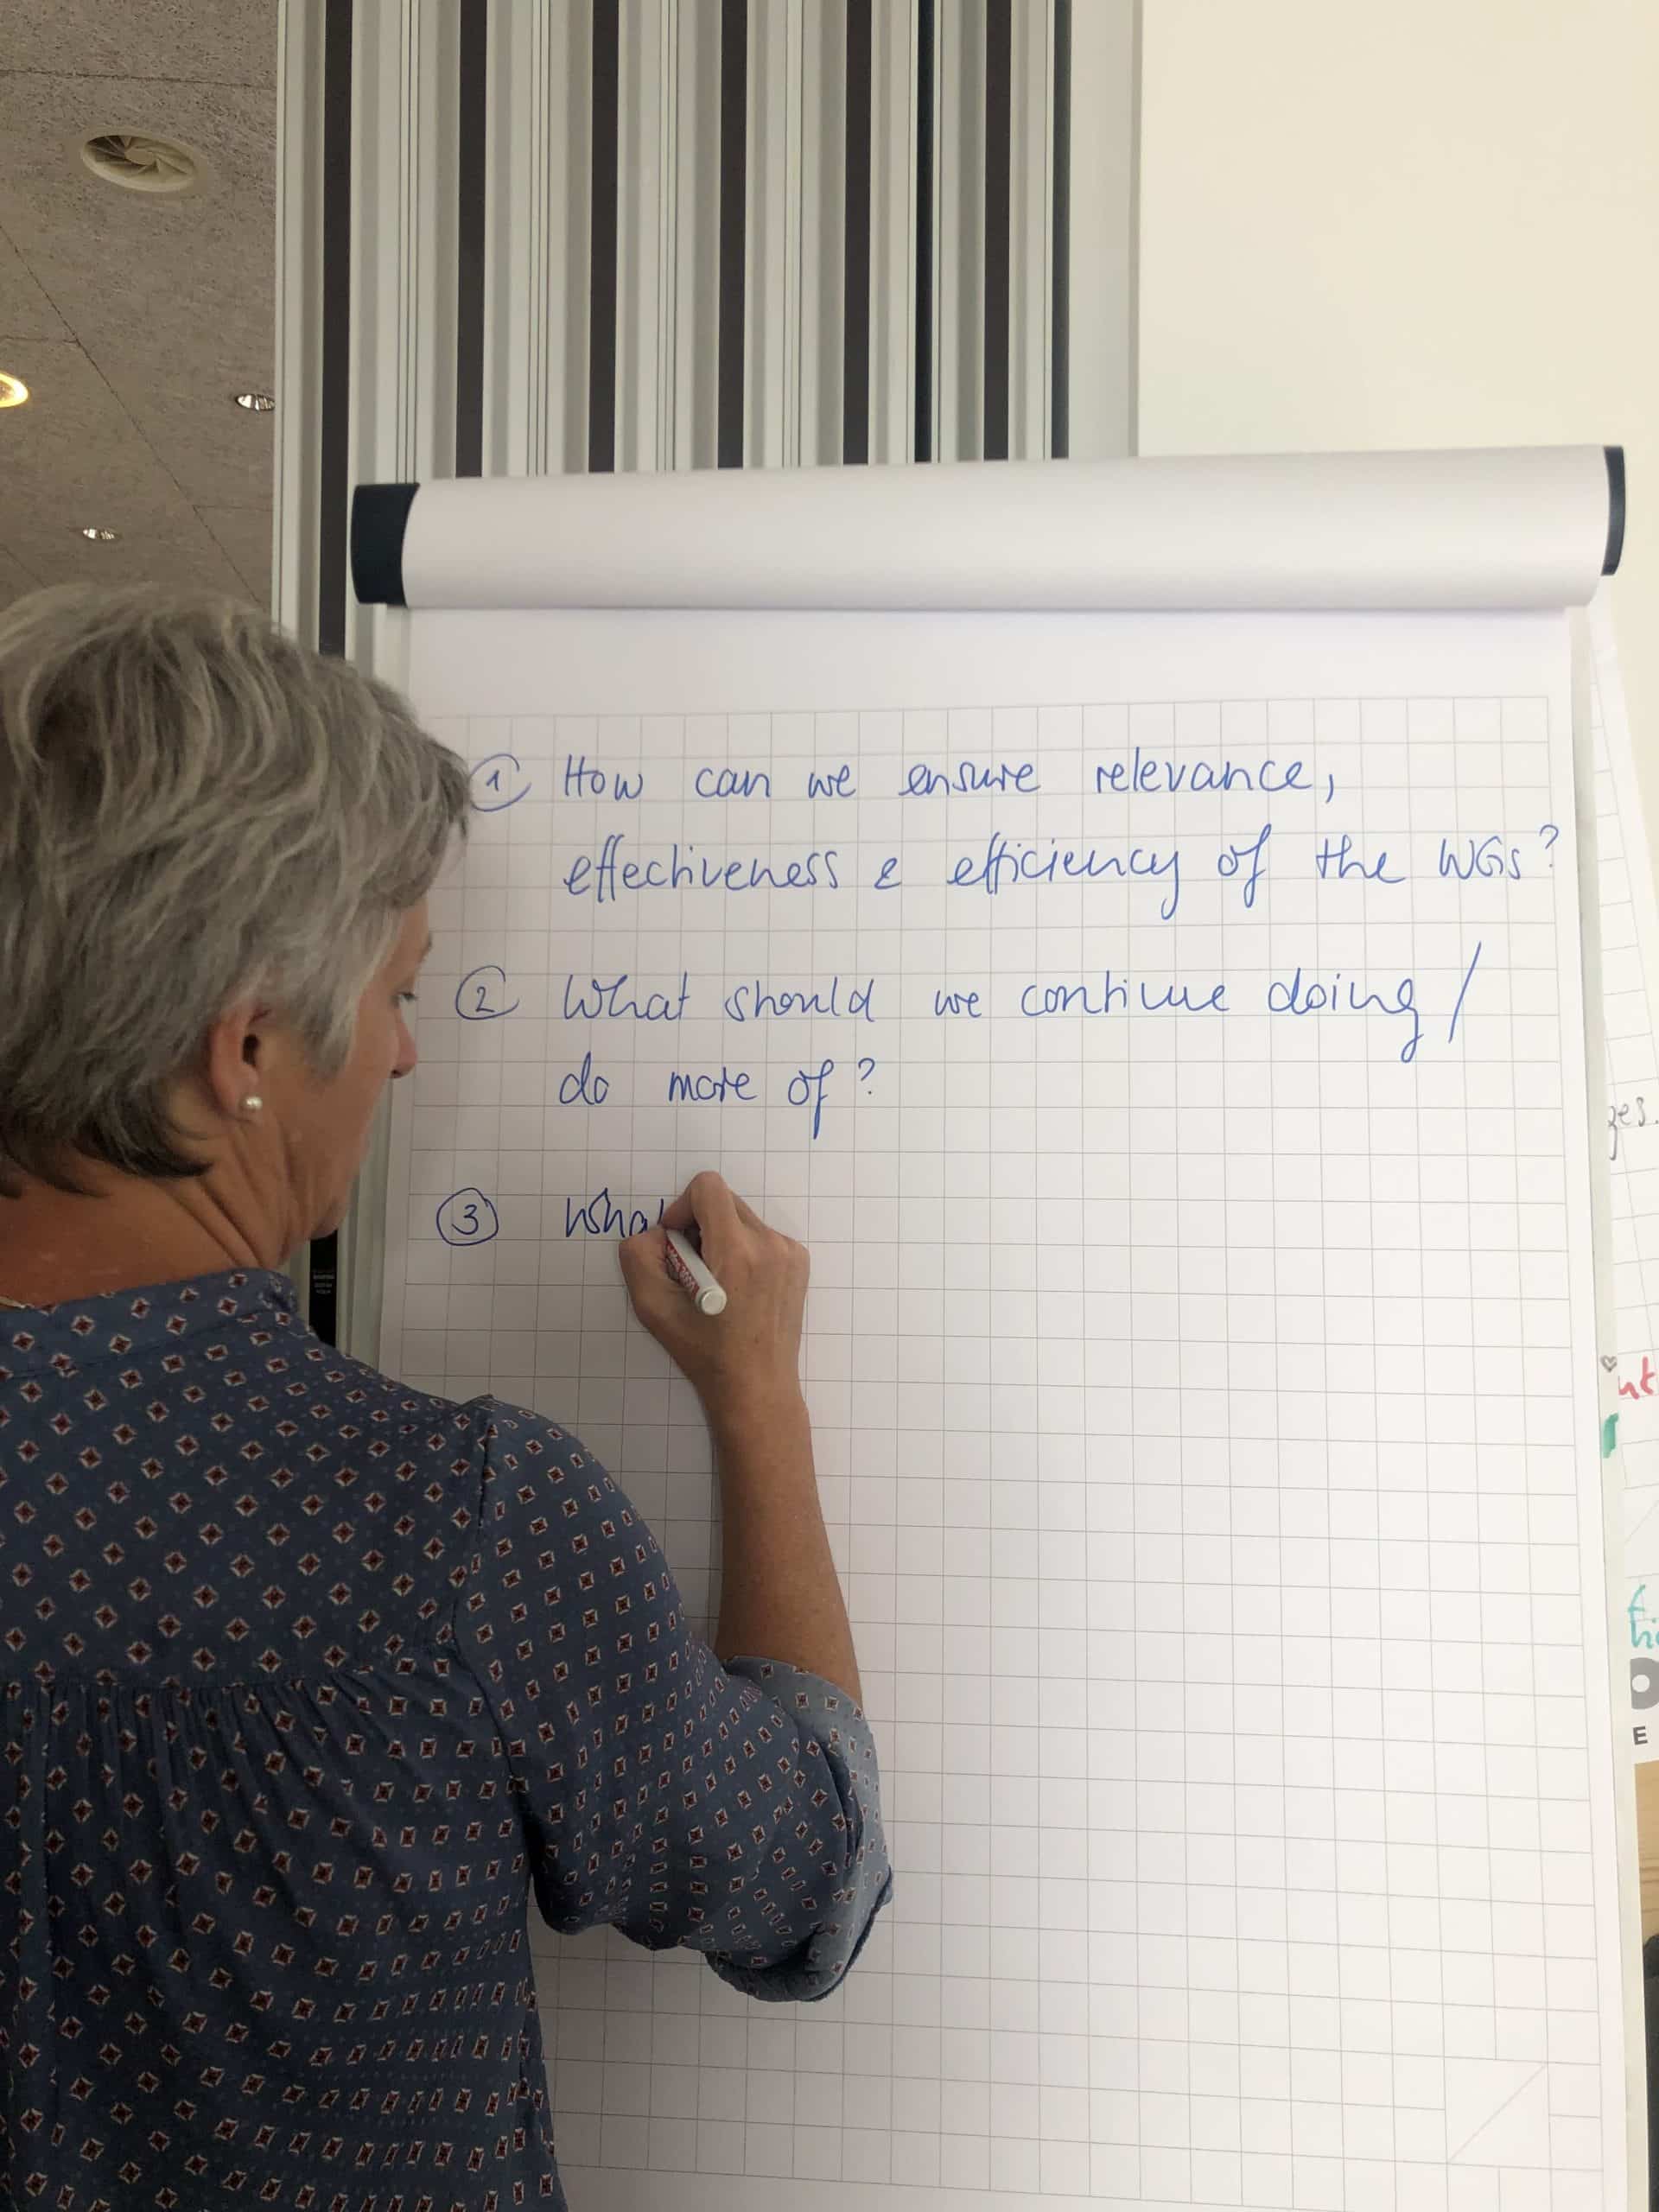 ① How can we ensure relevance,
effectiveness & efficiency of the WGs?
② What should we continue doing /
do more of?
③ Wha
ges.
E